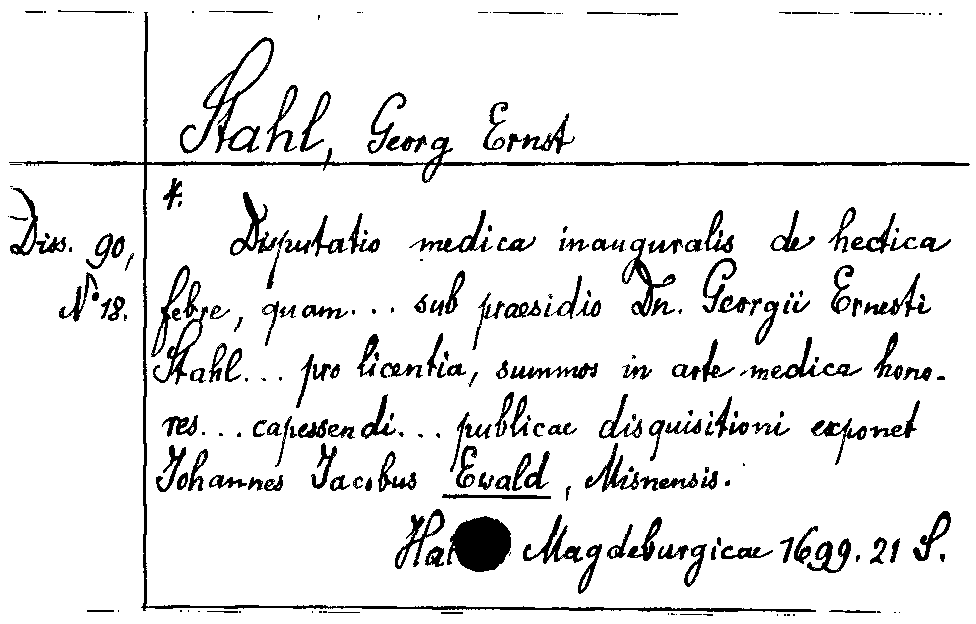 Stahl, Georg Ernst
4.
Diss. 90,
N° 18.
Disputatio medica inauguralis de hectica
febre, quam... sub praesidio Dn. Georgii Ernesti
Stahl... pro licentia, summos in arte medica hono-
res... capessendi... publicae disquisitioni exponet
Johannes Jacobus Ewald, Misnensis.
Magdeburgicae 1699. 21 S.